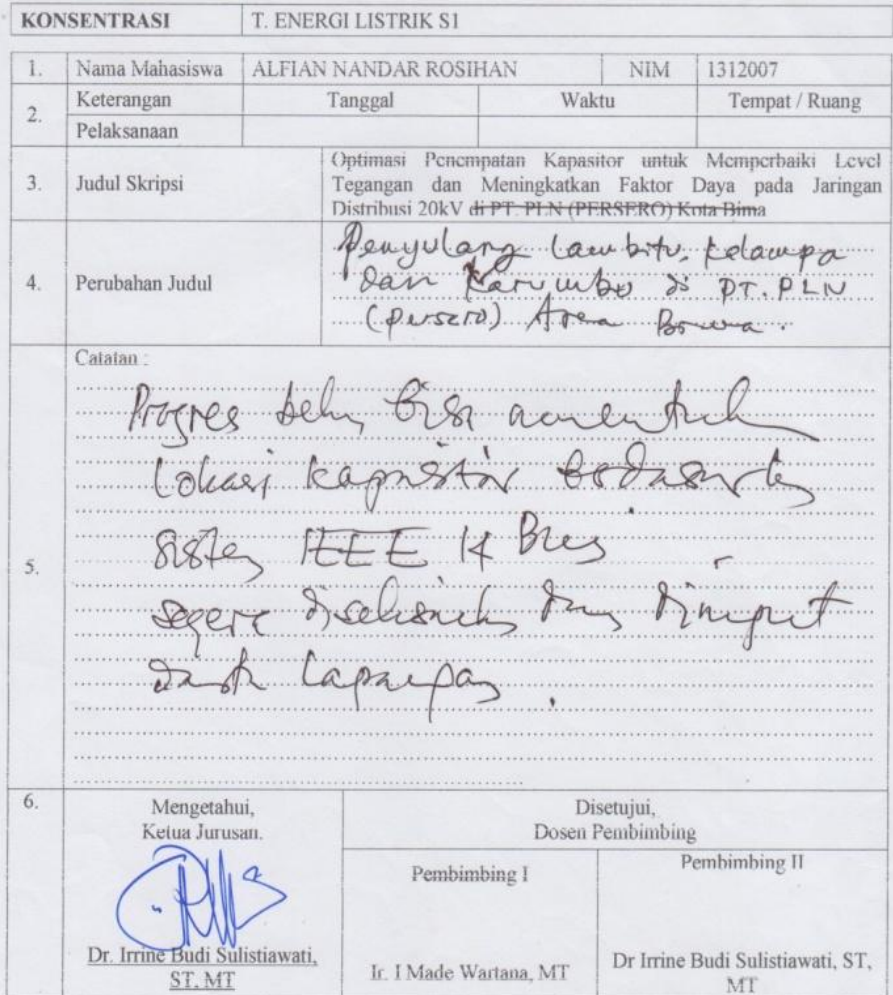 KONSENTRASI T. ENERGI LISTRIK S1
1. Nama Mahasiswa ALFIAN NANDAR ROSIHAN NIM 1312007
2. Keterangan Pelaksanaan Tanggal Waktu Tempat / Ruang
3. Judul Skripsi
Optimasi Penempatan Kapasitor untuk Memperbaiki Level
Tegangan dan Meningkatkan Faktor Daya pada Jaringan
Distribusi 20kV di PT. PLN (PERSERO) Kota Bima
4. Perubahan Judul
Penyulang Lambitu, Kelampa
dan Karumbu di PT. PLN
(Persero) Area Bima.
5. Catatan :
Progres belum bisa menentuk
Lokasi kapasitor
Sistem IEEE 14 Bus
segera dan diinput
Lapangan.
6. Mengetahui,
Ketua Jurusan.
Dr. Irrine Budi Sulistiawati,
ST, MT
Disetujui,
Dosen Pembimbing
Pembimbing I
Ir. I Made Wartana, MT
Pembimbing II
Dr Irrine Budi Sulistiawati, ST,
MT